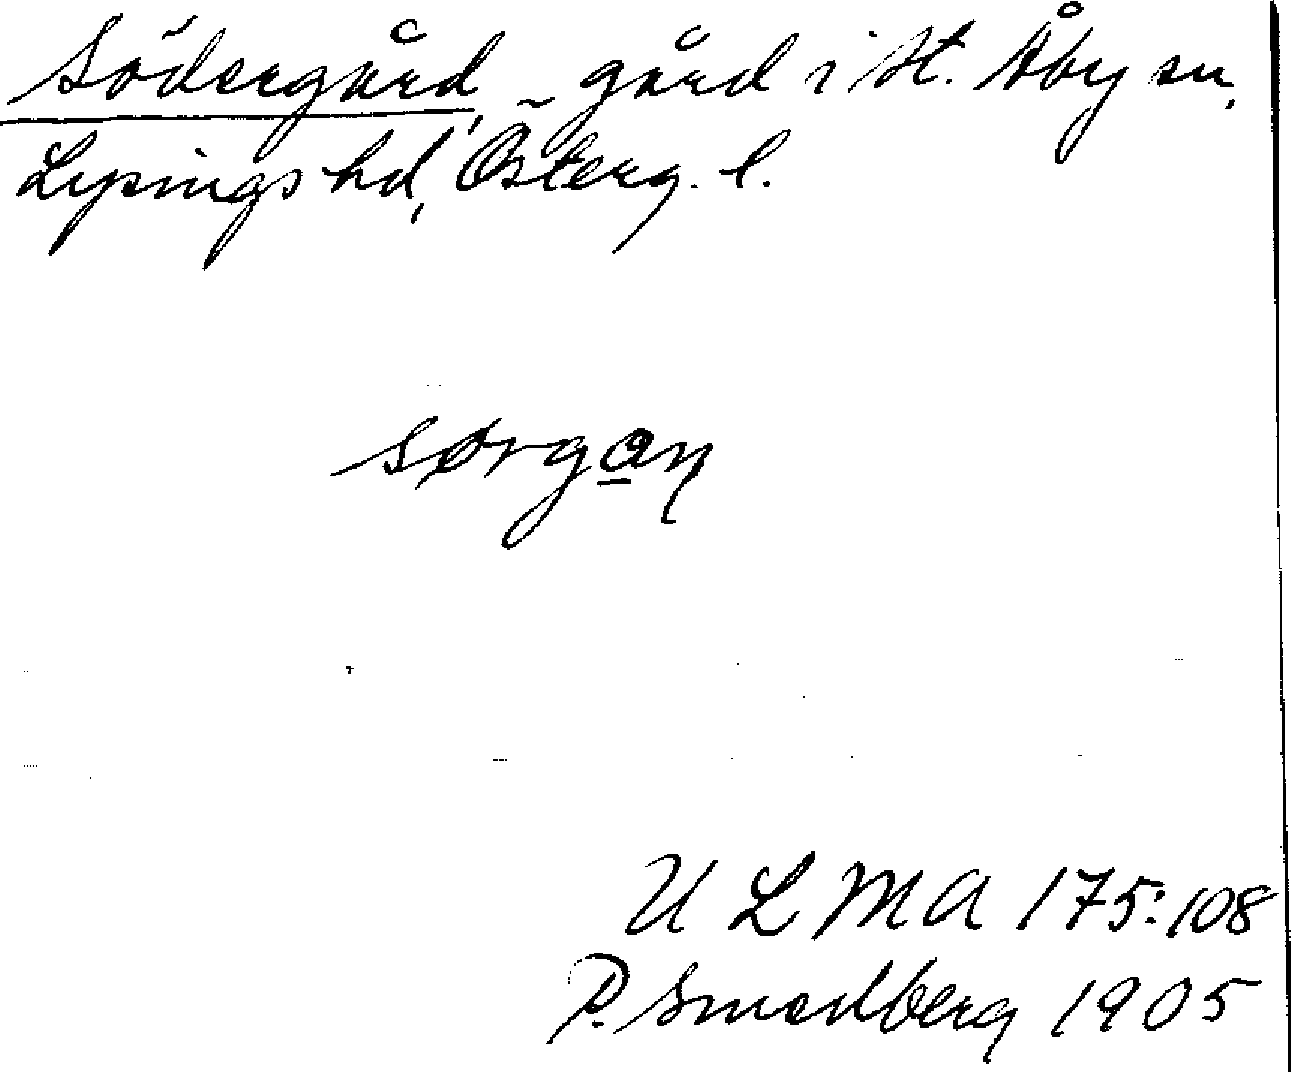 Södergård, gård i St. Åby sn,
Lysings hd, Österg. l.
sørgan
U L M A 175:108
P. Smedberg 1905